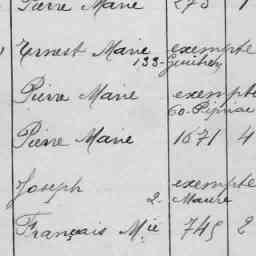 Pierre Marie 275 1
Ernest Marie exempte
133-
Pierre Marie exempte
60-Pipriac
Pierre Marie 1671 4
Joseph exempte
2- Maure
François Mie 745 2